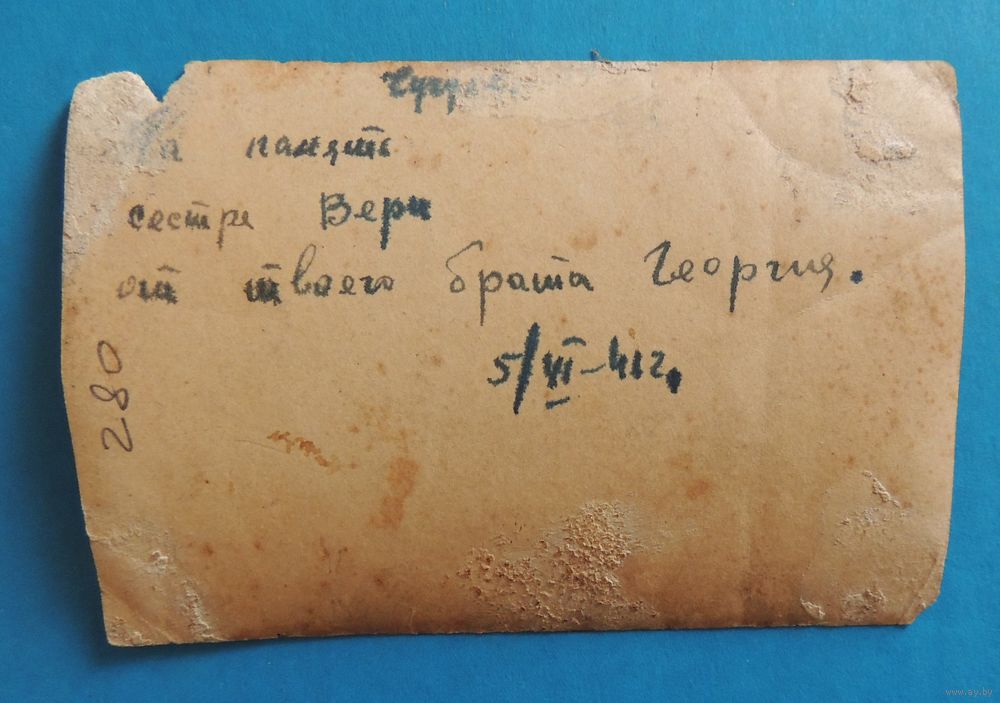 на память
сестре Вери
от твоего брата Георгия.
5/VI-41г.
280
www.ay.by